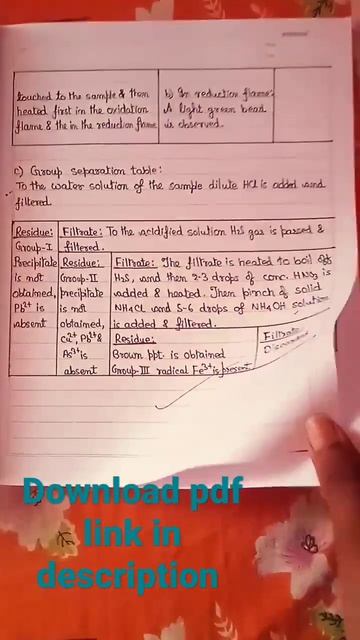 touched to the sample & then
heated first in the oxidation
flame & the in the reduction flame
b) In reduction flame:
A light green bead
is observed.
c) Group separation table:
To the water solution of the sample dilute HCl is added and
filtered.
Residue:
Group-I
Precipitate
is not
obtained,
Pb²⁺ is
absent
Filtrate: To the acidified solution H₂S gas is passed &
filtered.
Residue:
Group-II
precipitate
is not
obtained,
Cu²⁺, Pb²⁺ &
As³⁺ is
absent
Filtrate: The filtrate is heated to boil off
H₂S, and then 2-3 drops of conc. HNO₃ is
added & heated. Then pinch of solid
NH₄Cl and 5-6 drops of NH₄OH solution
is added & filtered.
Residue:
Brown ppt. is obtained
Group-III radical Fe³⁺ is present
Filtrate
Download pdf
link in
description